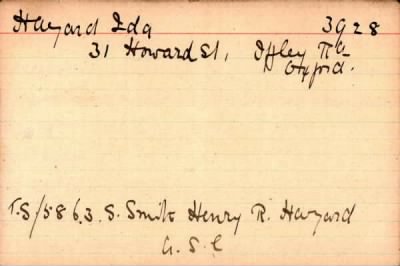 Hazard Ida 3928
31 Howard St, Iffley Rd
Oxford.
T.S/5863. S. Smith Henry R. Hazard
A.S.C